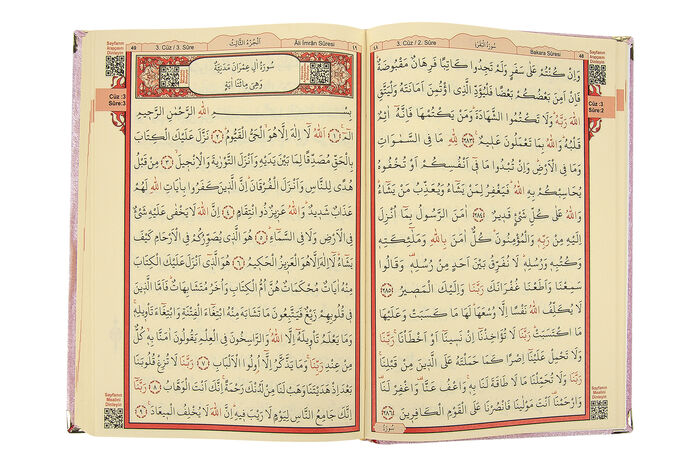 48
3. Cüz / 2. Sûre
سُورَةُ الْبَقَرَةِ
Bakara Sûresi
٤٨
Sayfanın Arapçasını Dinleyin
Cüz :3
Sûre:2
وَاِنْ كُنْتُمْ عَلٰى سَفَرٍ وَلَمْ تَجِدُوا كَاتِبًا فَرِهَانٌ مَقْبُوضَةٌ
فَاِنْ اَمِنَ بَعْضُكُمْ بَعْضًا فَلْيُؤَدِّ الَّذِى اؤْتُمِنَ اَمَانَتَهُ وَلْيَتَّقِ
اللّٰهَ رَبَّهُ وَلَا تَكْتُمُوا الشَّهَادَةَ وَمَنْ يَكْتُمْهَا فَاِنَّهُ اٰثِمٌ
قَلْبُهُ وَاللّٰهُ بِمَا تَعْمَلُونَ عَلِيمٌ ﴿٢٨٣﴾ لِلّٰهِ مَا فِى السَّمٰوَاتِ
وَمَا فِى الْاَرْضِ وَاِنْ تُبْدُوا مَا فِى اَنْفُسِكُمْ اَوْ تُخْفُوهُ
يُحَاسِبْكُمْ بِهِ اللّٰهُ فَيَغْفِرُ لِمَنْ يَشَاءُ وَيُعَذِّبُ مَنْ يَشَاءُ
وَاللّٰهُ عَلٰى كُلِّ شَيْءٍ قَدِيرٌ ﴿٢٨٤﴾ اٰمَنَ الرَّسُولُ بِمَا اُنْزِلَ
اِلَيْهِ مِنْ رَبِّهِ وَالْمُؤْمِنُونَ كُلٌّ اٰمَنَ بِاللّٰهِ وَمَلٰئِكَتِهِ
وَكُتُبِهِ وَرُسُلِهِ لَا نُفَرِّقُ بَيْنَ اَحَدٍ مِنْ رُسُلِهِ وَقَالُوا
سَمِعْنَا وَاَطَعْنَا غُفْرَانَكَ رَبَّنَا وَاِلَيْكَ الْمَصِيرُ ﴿٢٨٥﴾
لَا يُكَلِّفُ اللّٰهُ نَفْسًا اِلَّا وُسْعَهَا لَهَا مَا كَسَبَتْ وَعَلَيْهَا
مَا اكْتَسَبَتْ رَبَّنَا لَا تُؤَاخِذْنَا اِنْ نَسِينَا اَوْ اَخْطَأْنَا رَبَّنَا
وَلَا تَحْمِلْ عَلَيْنَا اِصْرًا كَمَا حَمَلْتَهُ عَلَى الَّذِينَ مِنْ قَبْلِنَا
رَبَّنَا وَلَا تُحَمِّلْنَا مَا لَا طَاقَةَ لَنَا بِهِ وَاعْفُ عَنَّا وَاغْفِرْ لَنَا
وَارْحَمْنَا اَنْتَ مَوْلٰينَا فَانْصُرْنَا عَلَى الْقَوْمِ الْكَافِرِينَ ﴿٢٨٦﴾
سُورَةُ
Sayfanın Mealini Dinleyin
49
3. Cüz / 3. Sûre
اَلْجُزْءُ الثَّالِثُ
Âli İmrân Sûresi
٤٩
Sayfanın Arapçasını Dinleyin
Cüz :3
Sûre:3
سُورَةُ اٰلِ عِمْرَانَ مَدَنِيَّةٌ
وَهِىَ مِائَتَا اٰيَةٍ
بِسْمِ اللّٰهِ الرَّحْمٰنِ الرَّحِيمِ
الٓمٓ ﴿١﴾ اَللّٰهُ لَا اِلٰهَ اِلَّا هُوَ الْحَىُّ الْقَيُّومُ ﴿٢﴾ نَزَّلَ عَلَيْكَ الْكِتَابَ
بِالْحَقِّ مُصَدِّقًا لِمَا بَيْنَ يَدَيْهِ وَاَنْزَلَ التَّوْرٰيةَ وَالْاِنْجِيلَ ﴿٣﴾ مِنْ قَبْلُ
هُدًى لِلنَّاسِ وَاَنْزَلَ الْفُرْقَانَ اِنَّ الَّذِينَ كَفَرُوا بِاٰيَاتِ اللّٰهِ لَهُمْ
عَذَابٌ شَدِيدٌ وَاللّٰهُ عَزِيزٌ ذُو انْتِقَامٍ ﴿٤﴾ اِنَّ اللّٰهَ لَا يَخْفٰى عَلَيْهِ شَيْءٌ
فِى الْاَرْضِ وَلَا فِى السَّمَاءِ ﴿٥﴾ هُوَ الَّذِى يُصَوِّرُكُمْ فِى الْاَرْحَامِ كَيْفَ
يَشَاءُ لَا اِلٰهَ اِلَّا هُوَ الْعَزِيزُ الْحَكِيمُ ﴿٦﴾ هُوَ الَّذِى اَنْزَلَ عَلَيْكَ الْكِتَابَ
مِنْهُ اٰيَاتٌ مُحْكَمَاتٌ هُنَّ اُمُّ الْكِتَابِ وَاُخَرُ مُتَشَابِهَاتٌ فَاَمَّا الَّذِينَ
فِى قُلُوبِهِمْ زَيْغٌ فَيَتَّبِعُونَ مَا تَشَابَهَ مِنْهُ ابْتِغَاءَ الْفِتْنَةِ وَابْتِغَاءَ تَأْوِيلِهِ
وَمَا يَعْلَمُ تَأْوِيلَهُ اِلَّا اللّٰهُ وَالرَّاسِخُونَ فِى الْعِلْمِ يَقُولُونَ اٰمَنَّا بِهِ كُلٌّ
مِنْ عِنْدِ رَبِّنَا وَمَا يَذَّكَّرُ اِلَّا اُولُوا الْاَلْبَابِ ﴿٧﴾ رَبَّنَا لَا تُزِغْ قُلُوبَنَا
بَعْدَ اِذْ هَدَيْتَنَا وَهَبْ لَنَا مِنْ لَدُنْكَ رَحْمَةً اِنَّكَ اَنْتَ الْوَهَّابُ ﴿٨﴾ رَبَّنَا
اِنَّكَ جَامِعُ النَّاسِ لِيَوْمٍ لَا رَيْبَ فِيهِ اِنَّ اللّٰهَ لَا يُخْلِفُ الْمِيعَادَ ﴿٩﴾
Sayfanın Mealini Dinleyin